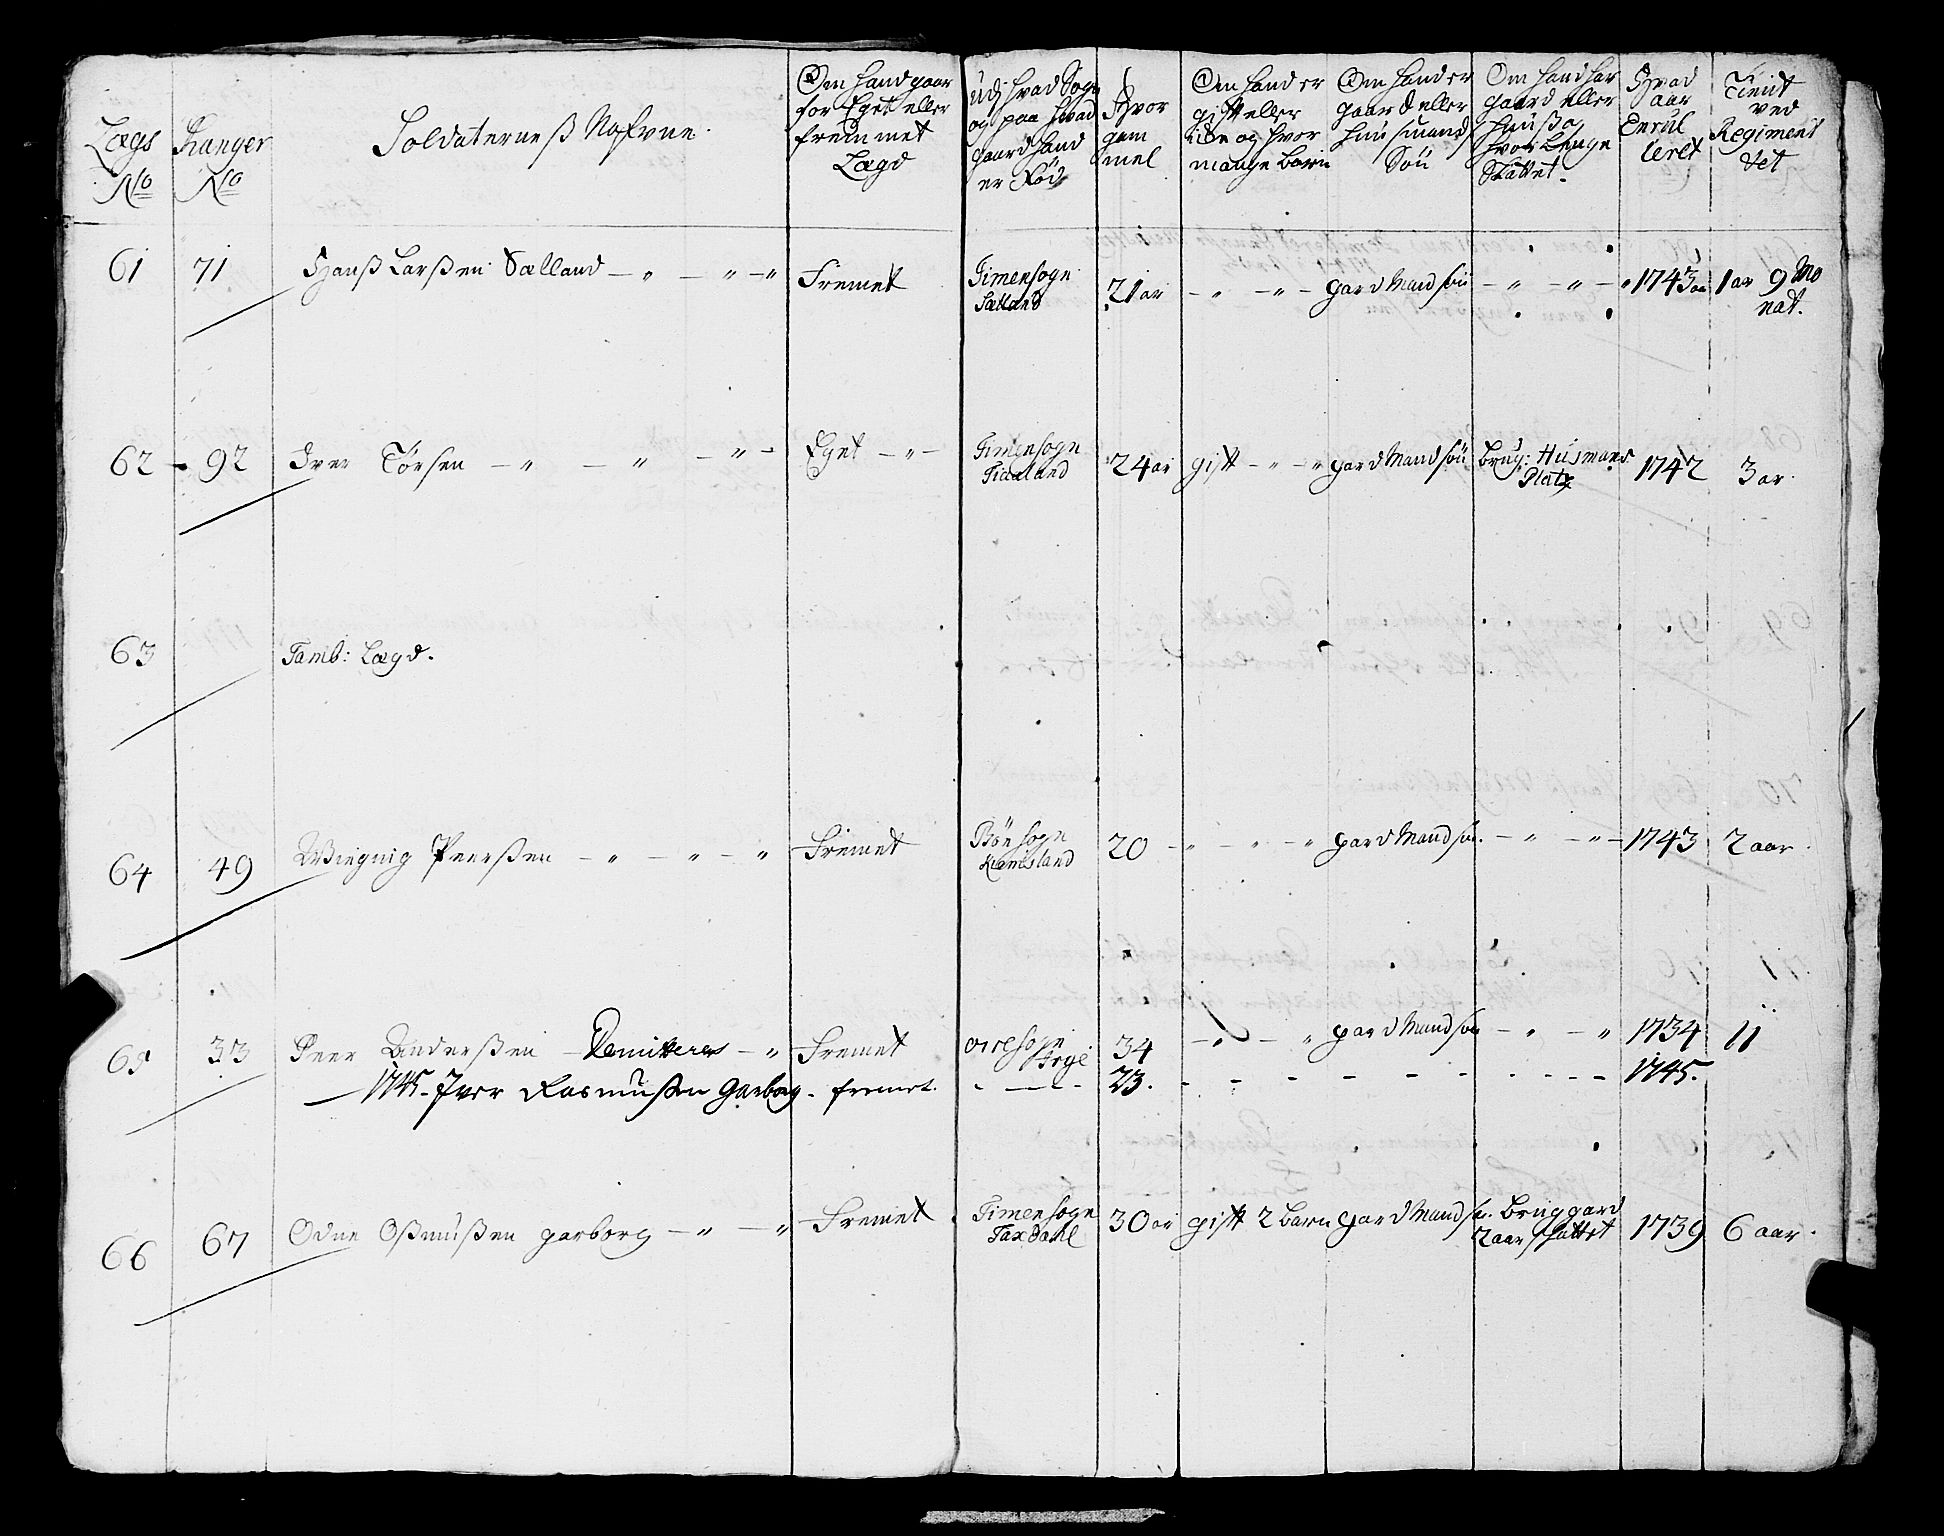 Lægs No
Ranger No
Soldaterneß Nafvne.
Om hand gaar for Eget eller fremmet Lægd
Udj hvad Sogn og paa hvad gaard hand er Fød
Hvor gam mel
Om hand er gifft eller icke og hvor mange børn
Om hand er gaard eller huusmands Søn
Om hand har gaard eller huuß og hvor Lenge Skattet.
Hvad aar Enrul leret
Tient ved Regiment tet
61 71 Hanß Larßen Sælland — " — " — " Fremet Timensogn Sælland 21 ar — " — " — gard Mand søn — " — " — " 1743 1 ar 9 Mo nat.
62 - 92 Iver Törsen — " — " — " — Eget — " — Timensogn Tiaaland 24 ar gifft — " — " gard Mand søn brug: Husmans Platz 1742 3 ar.
63 Tamb: Lægd.
64 49 Peerßen — " — " — " Fremet Bönsogn 20 — " — " — " gard Mand søn. — " — " — 1743 2 aar.
65 33 Peer Anderßen — Demitteres — " Fremet 34 — " — " gard Mand søn — " — " 1734 11
— 1745. Iver Rasmußen Garborg. fremet. - — - - 23. - - - - - - - - - - 1745.
66 67 Odne Oßmußen garborg — " — " Fremet Timensogn Taxdahl 30 ar gifft 2 barn gard Mand sø. brug gard 2 aar skattet 1739 6 aar.